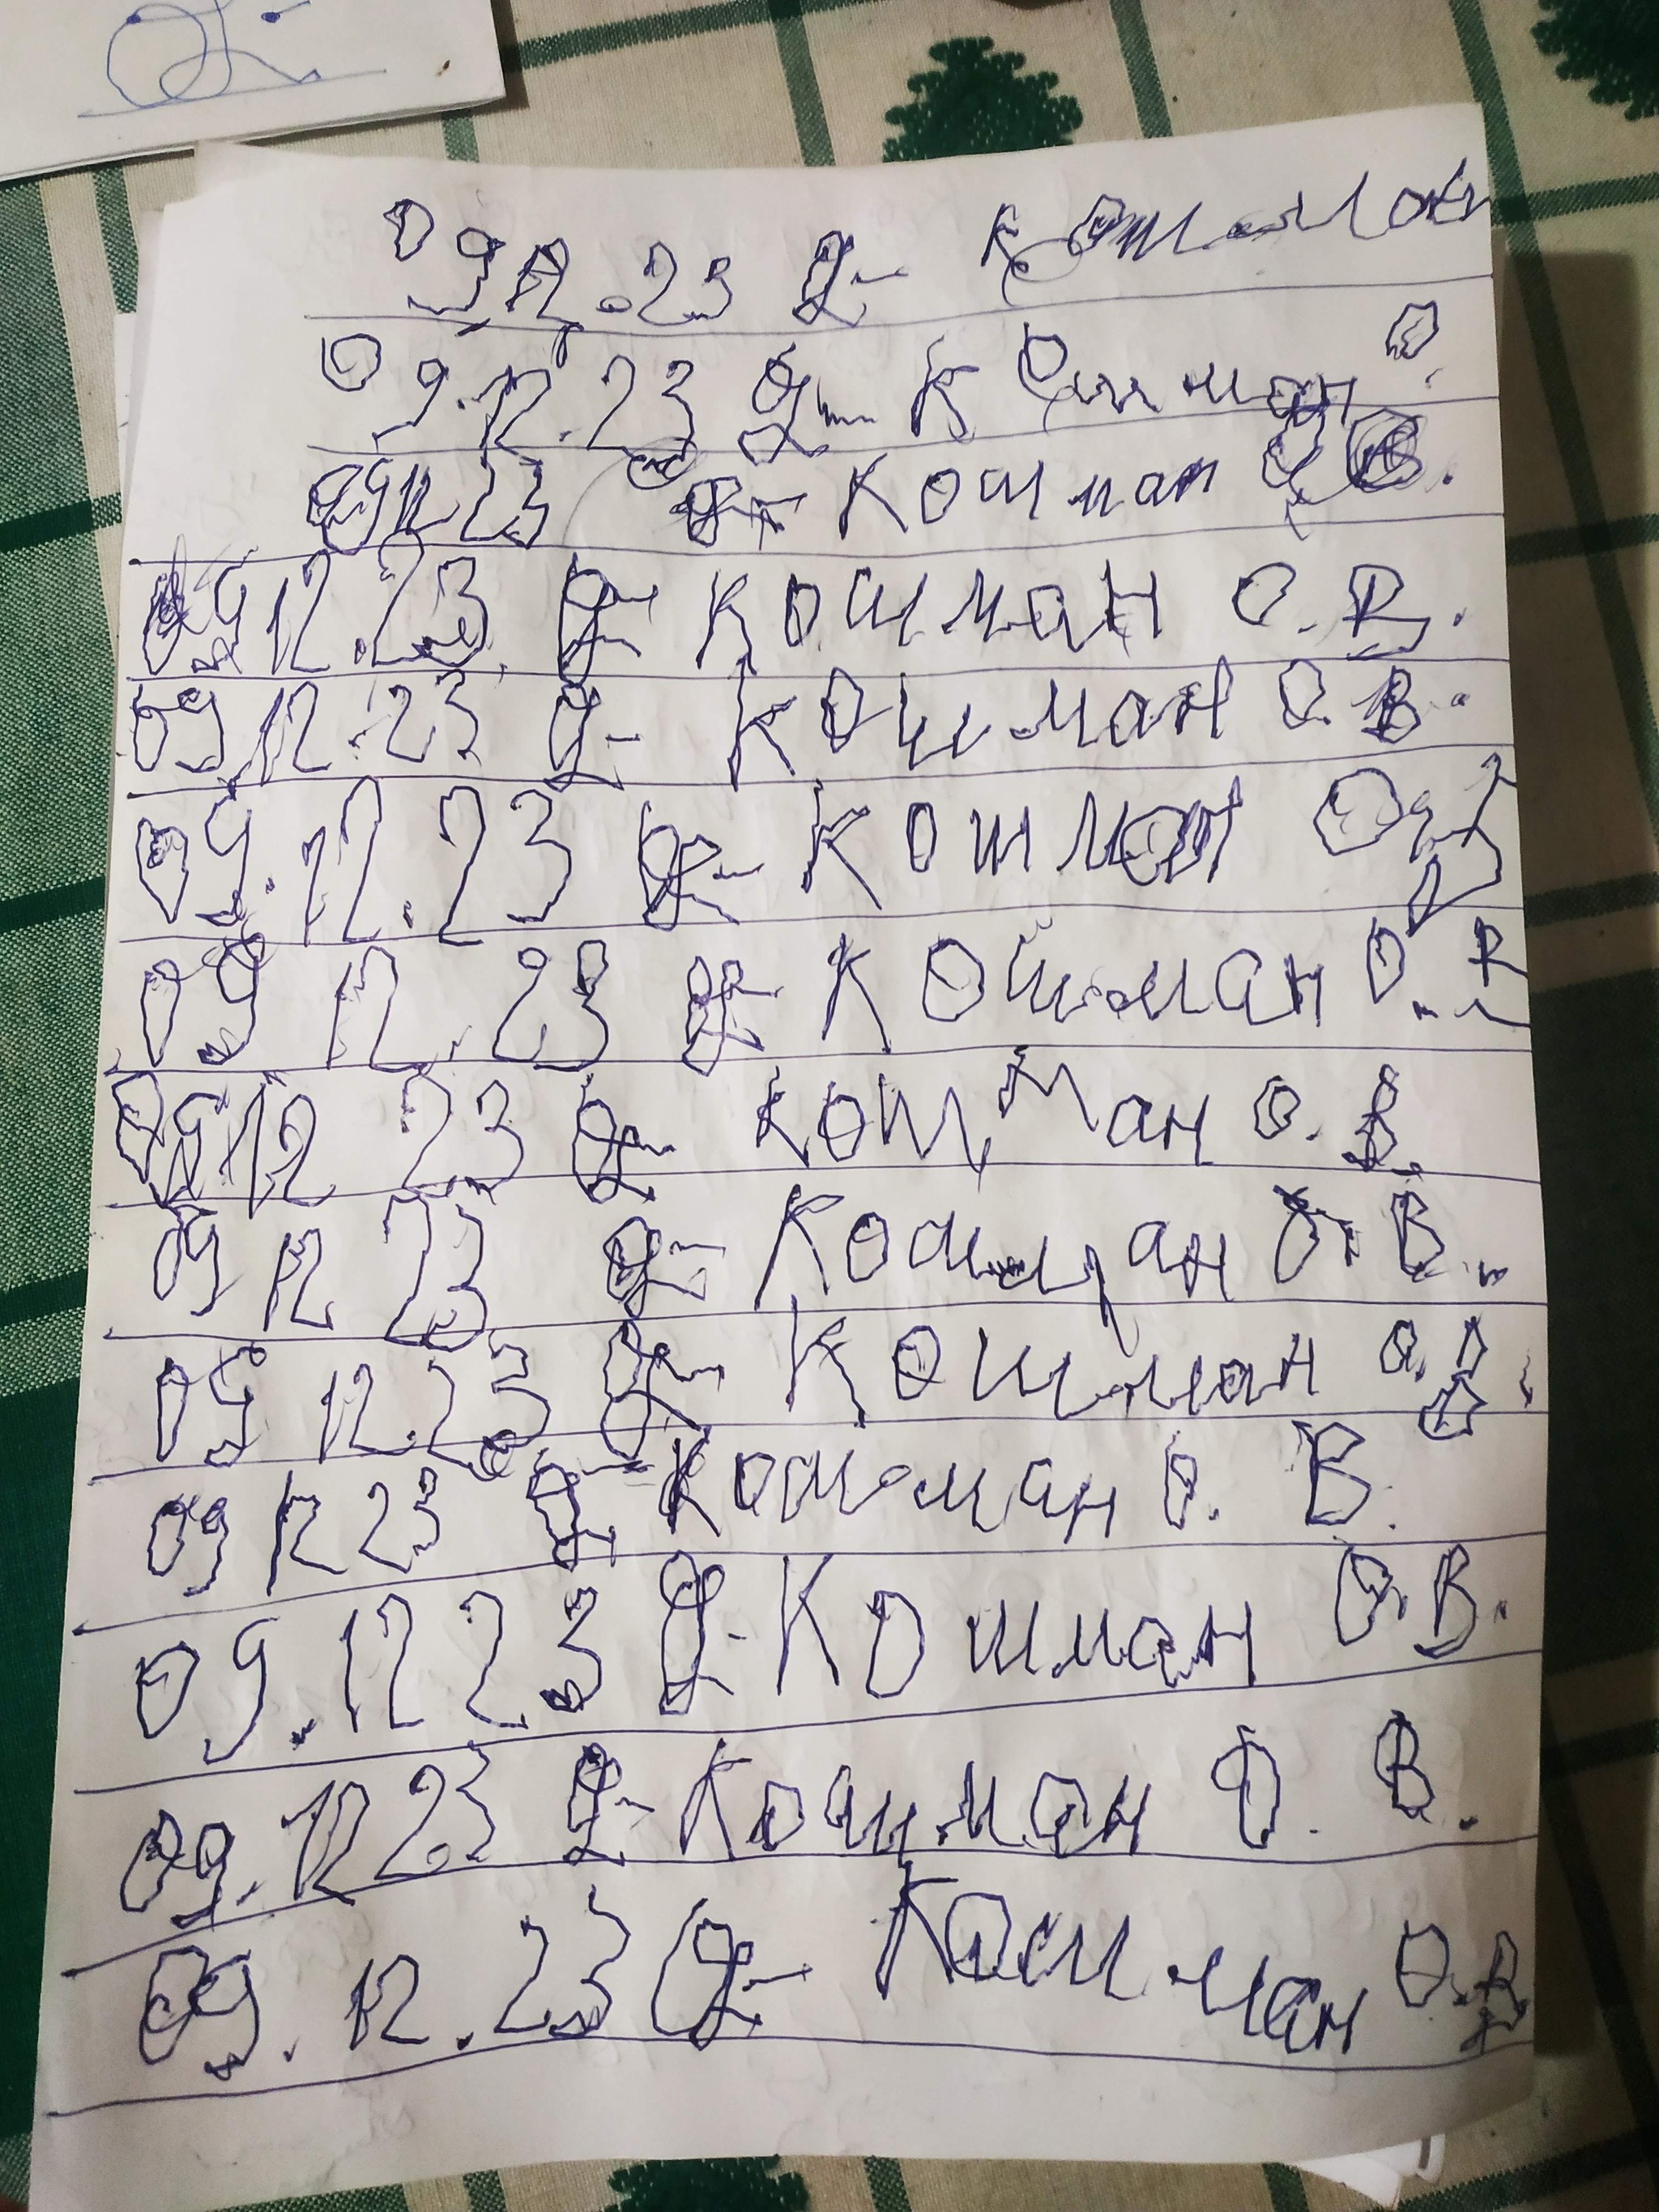 09 12.23 Кошман
09.12.23 Кошман О.
09 12 23 Кошман О В.
09 12.23 Кошман О.В.
09.12.23 Кошман О.В.
09.12.23 Кошман О.В
09 12.23 Кошман О.В
09 12 23 Кошман О.В.
09 12 23 Кошман О.В.
09 12.23 Кошман О.В.
09 12 23 Кошман О. В.
09.12 23 Кошман О.В.
09.12 23 Кошман О. В.
09.12.23 Кошман О.В